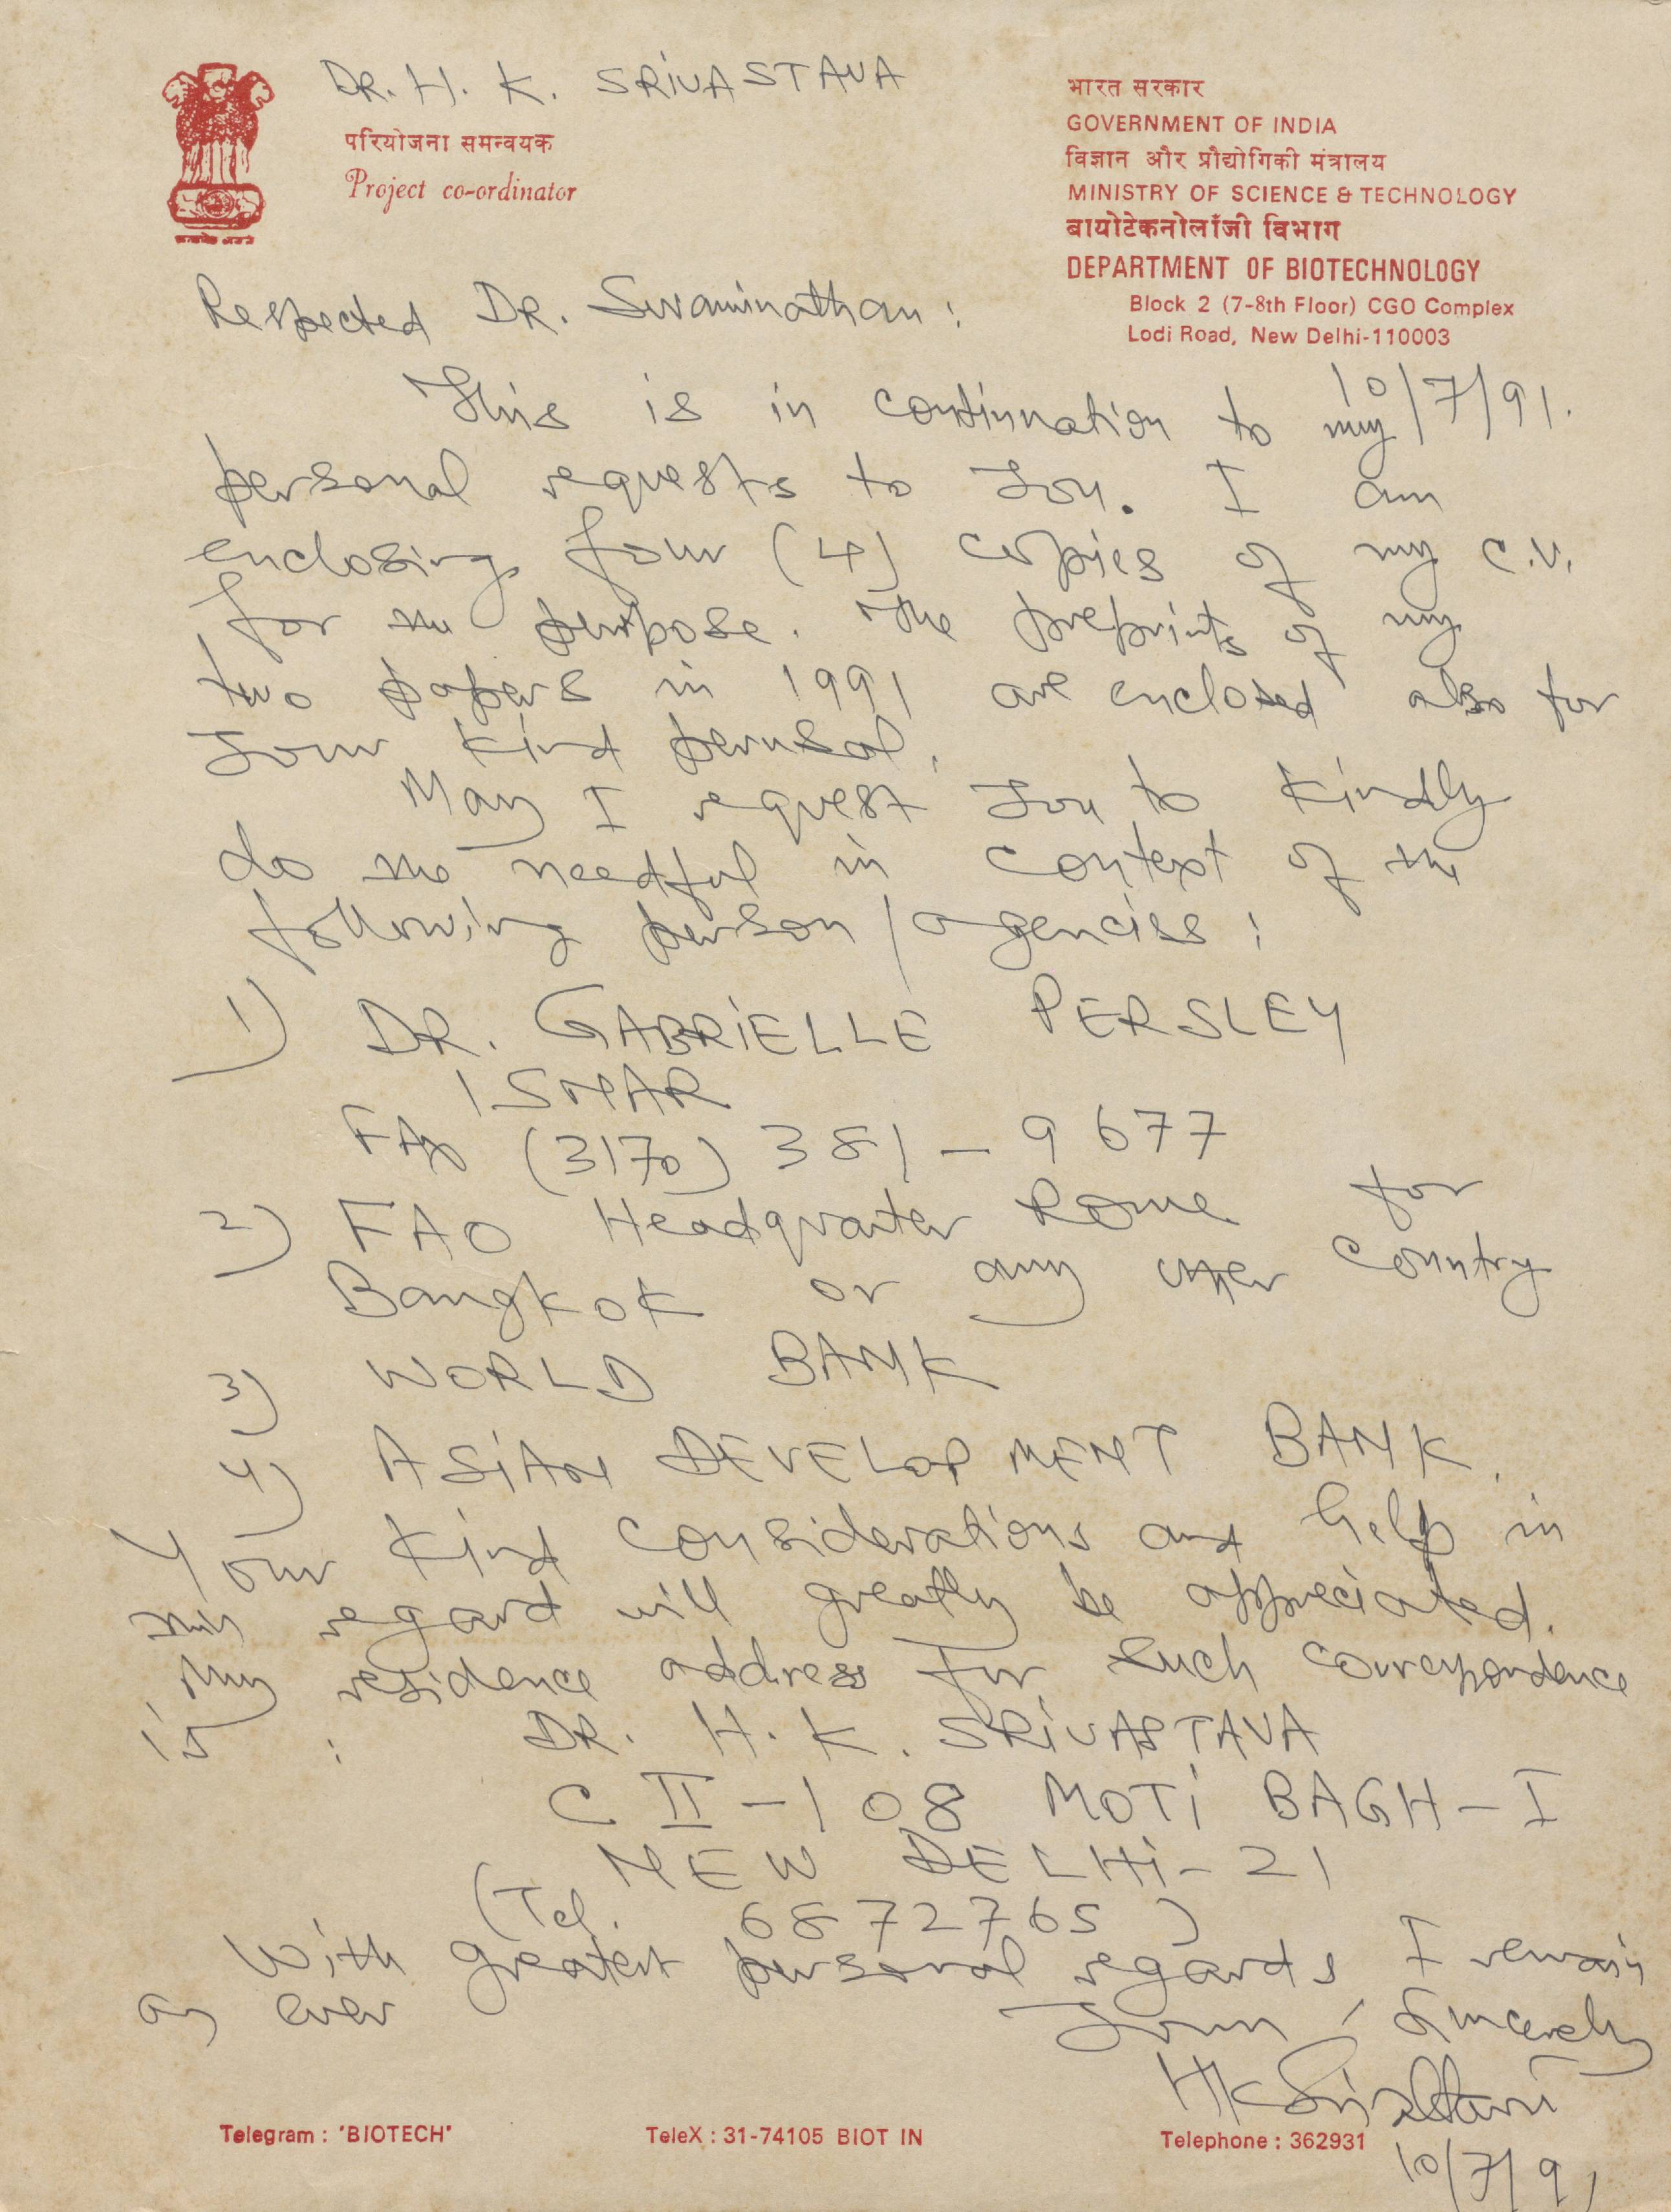 DR. H. K. SRIVASTAVA
परियोजना समन्वयक
Project co-ordinator
भारत सरकार
GOVERNMENT OF INDIA
विज्ञान और प्रौद्योगिकी मंत्रालय
MINISTRY OF SCIENCE & TECHNOLOGY
बायोटेकनोलॉजी विभाग
DEPARTMENT OF BIOTECHNOLOGY
Block 2 (7-8th Floor) CGO Complex
Lodi Road, New Delhi-110003
10/7/91.
Respected DR. Swaminathan:
This is in continuation to my
personal requests to you. I am
enclosing four (4) copies of my C.V.
for the purpose. The preprints of my
two papers in 1991 are enclosed also for
your kind perusal.
May I request you to kindly
do the needful in context of the
following person/agencies:
1) DR. GABRIELLE PERSLEY
ISNAR
FAX (3170) 381-9677
2) FAO Headquarter Rome for
Bangkok or any other country
3) WORLD BANK
4) ASIAN DEVELOPMENT BANK.
Your kind considerations and help in
this regard will greatly be appreciated.
My residence address for such correspondence
is : DR. H. K. SRIVASTAVA
C II-108 MOTI BAGH-I
NEW DELHI-21
(Tel. 6872765)
With greatest personal regards, I remain
as ever
Yours sincerely
HKSrivastava
10/7/91
Telegram : 'BIOTECH'
TeleX : 31-74105 BIOT IN
Telephone : 362931